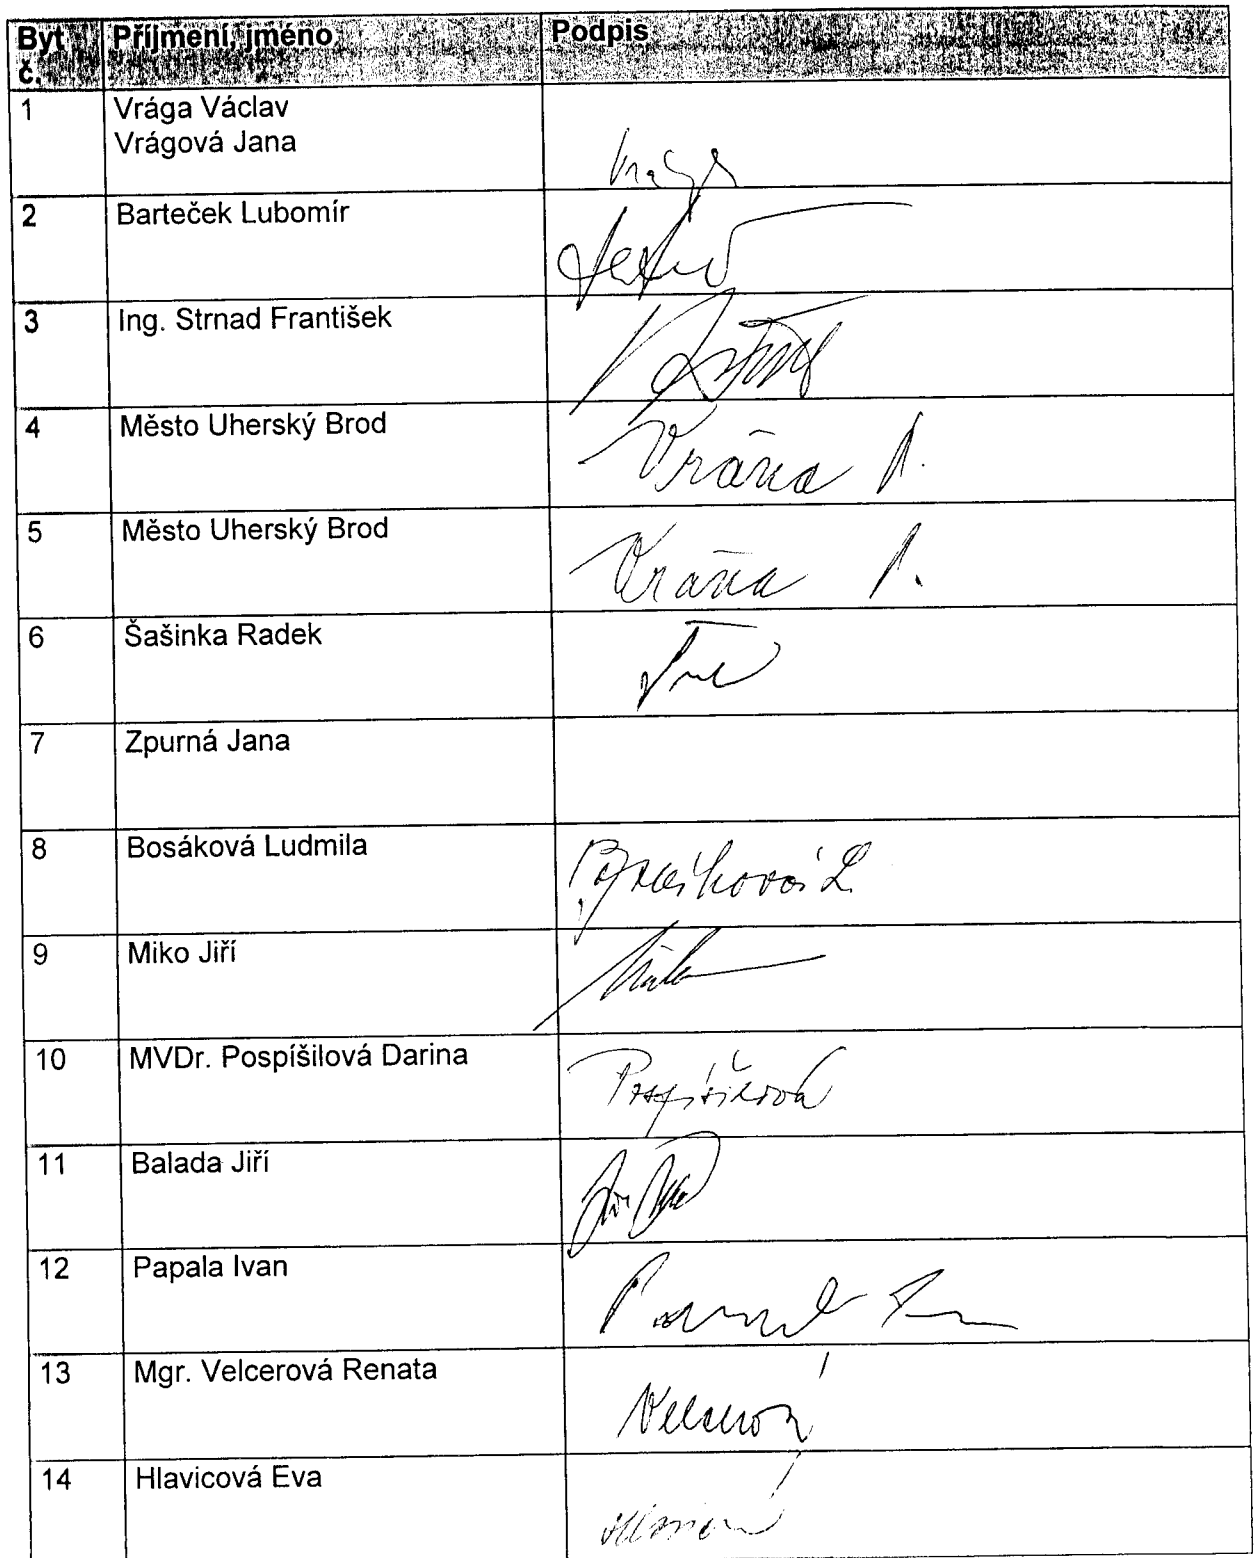 Byt Příjmení, jméno Podpis
č.
1 Vrága Václav
Vrágová Jana
Vrága
2 Barteček Lubomír
3 Ing. Strnad František
4 Město Uherský Brod
Vrána P.
5 Město Uherský Brod
Vrána P.
6 Šašinka Radek
7 Zpurná Jana
8 Bosáková Ludmila
Bosáková L.
9 Miko Jiří
10 MVDr. Pospíšilová Darina
Pospíšilová
11 Balada Jiří
12 Papala Ivan
13 Mgr. Velcerová Renata
Velcerová
14 Hlavicová Eva